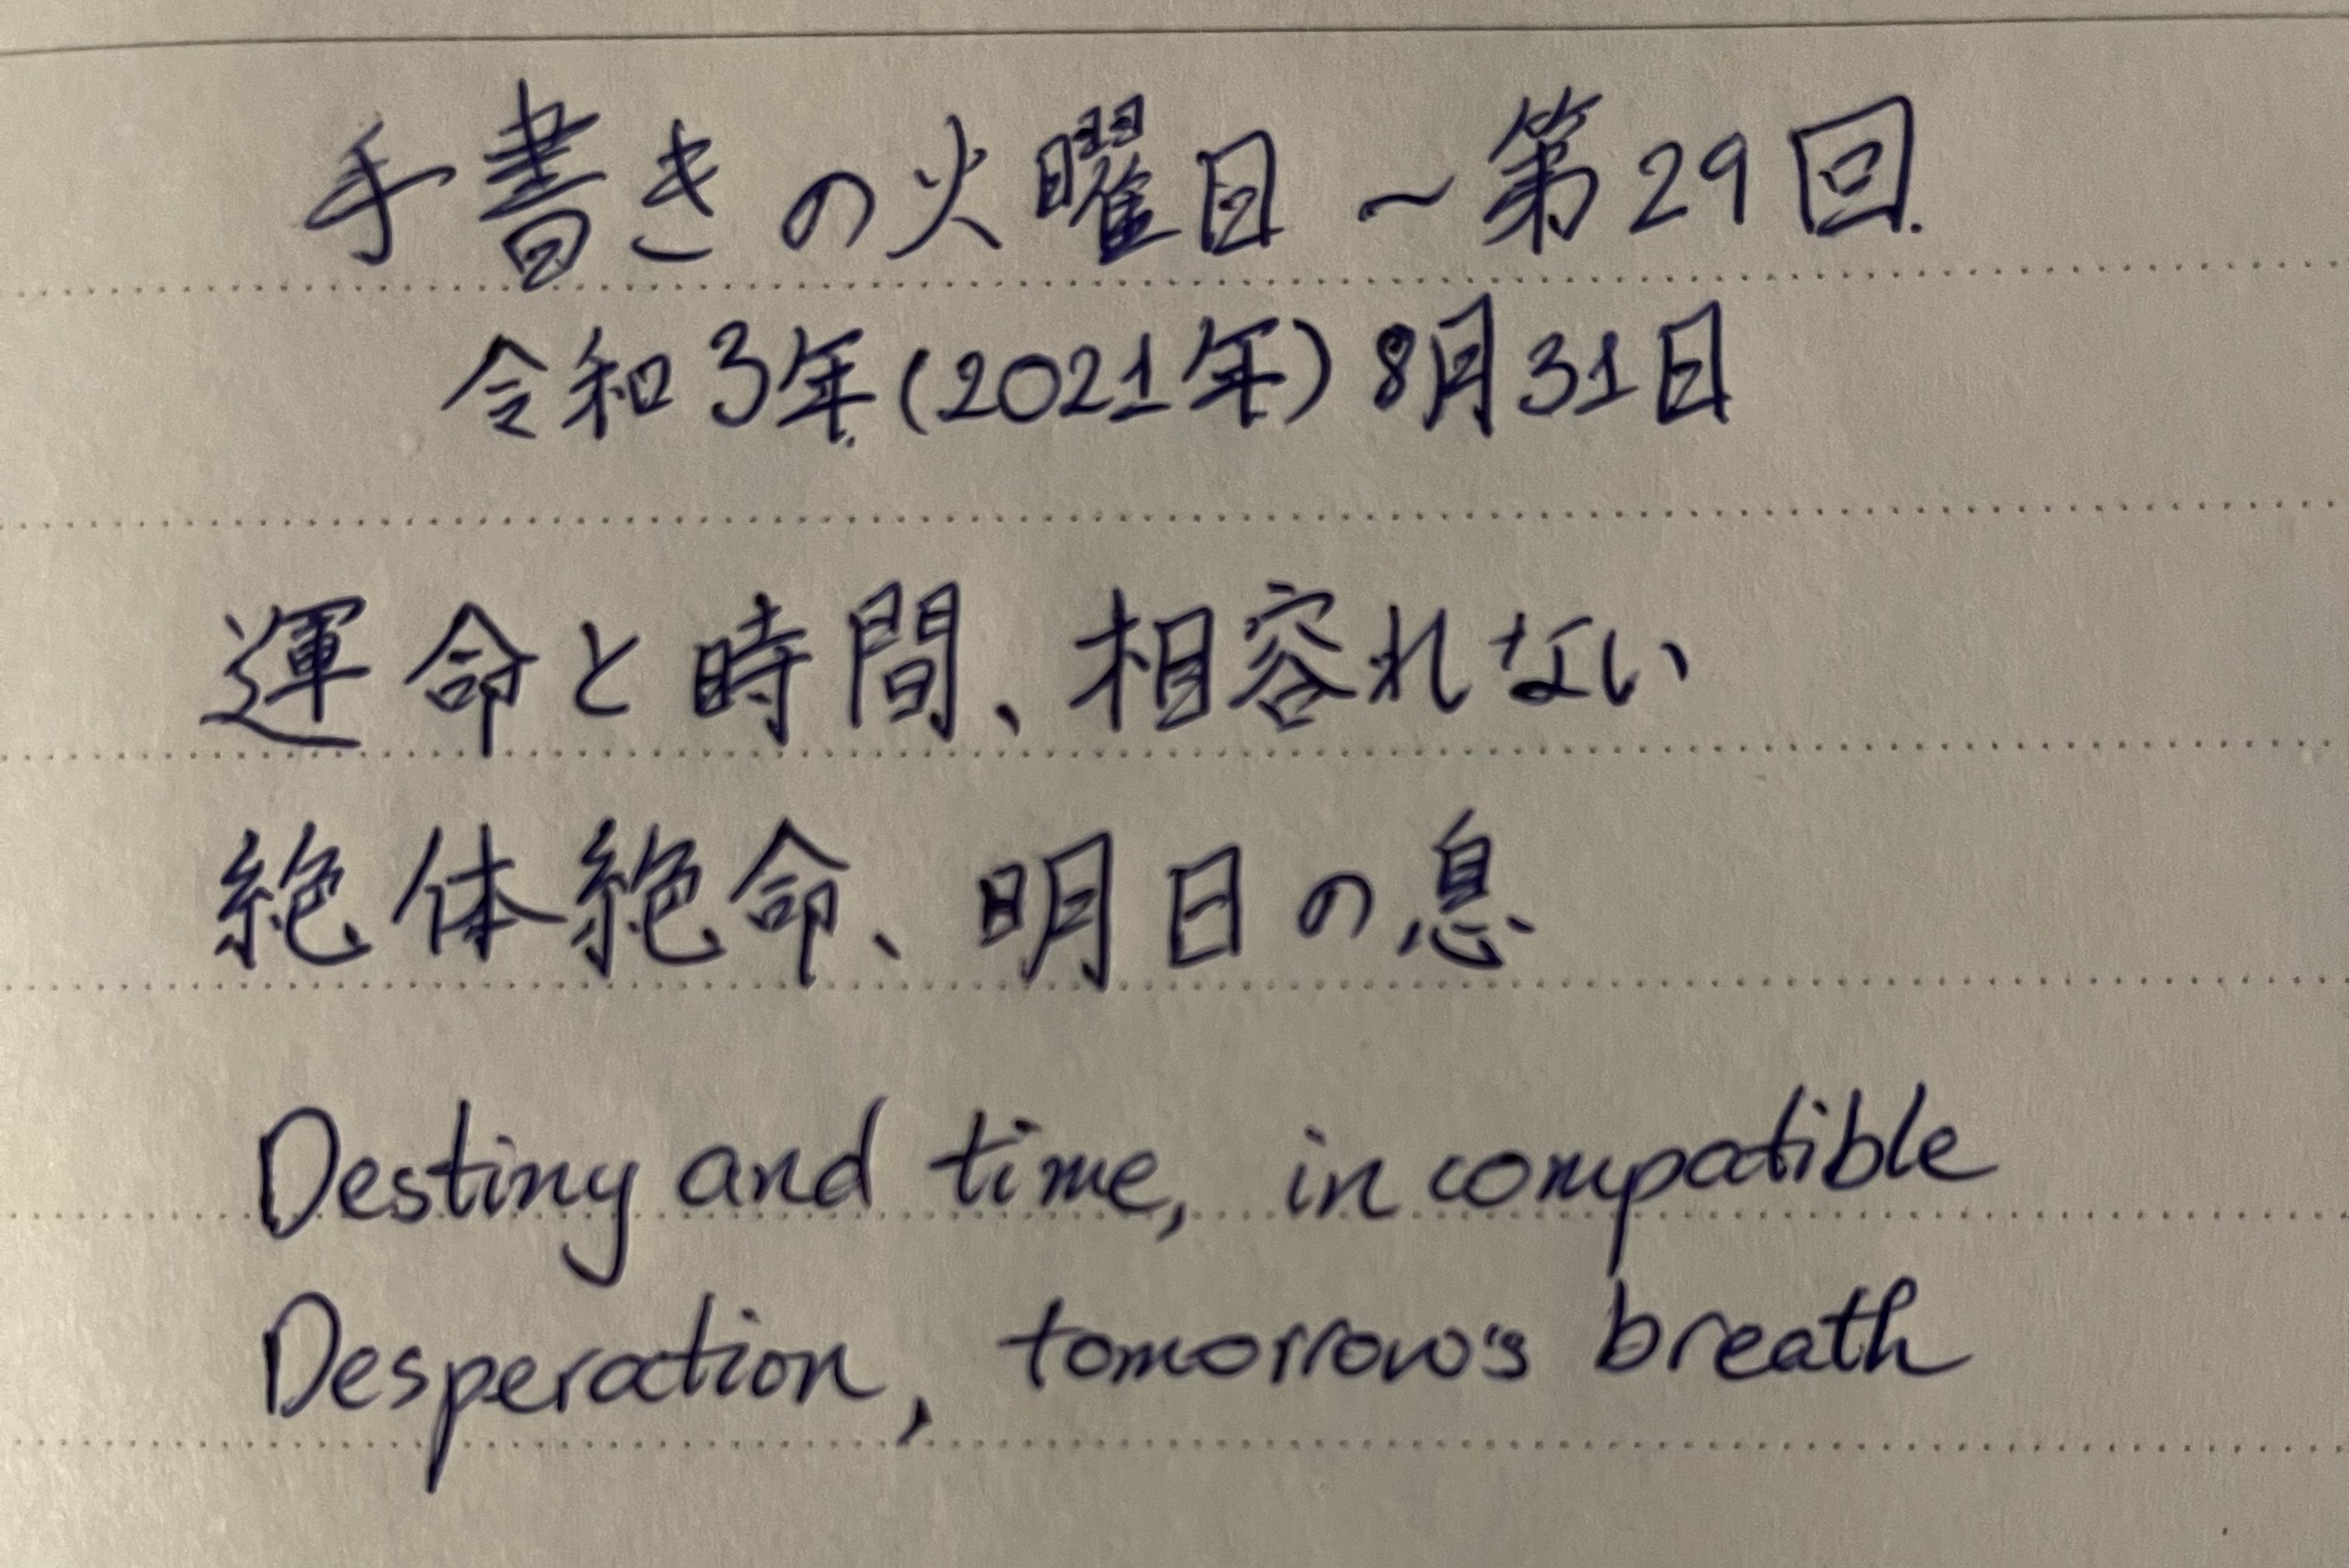 手書きの火曜日～第29回.
令和3年.(2021年)8月31日
運命と時間、相容れない
絶体絶命、明日の息
Destiny and time, incompatible
Desperation, tomorrow's breath